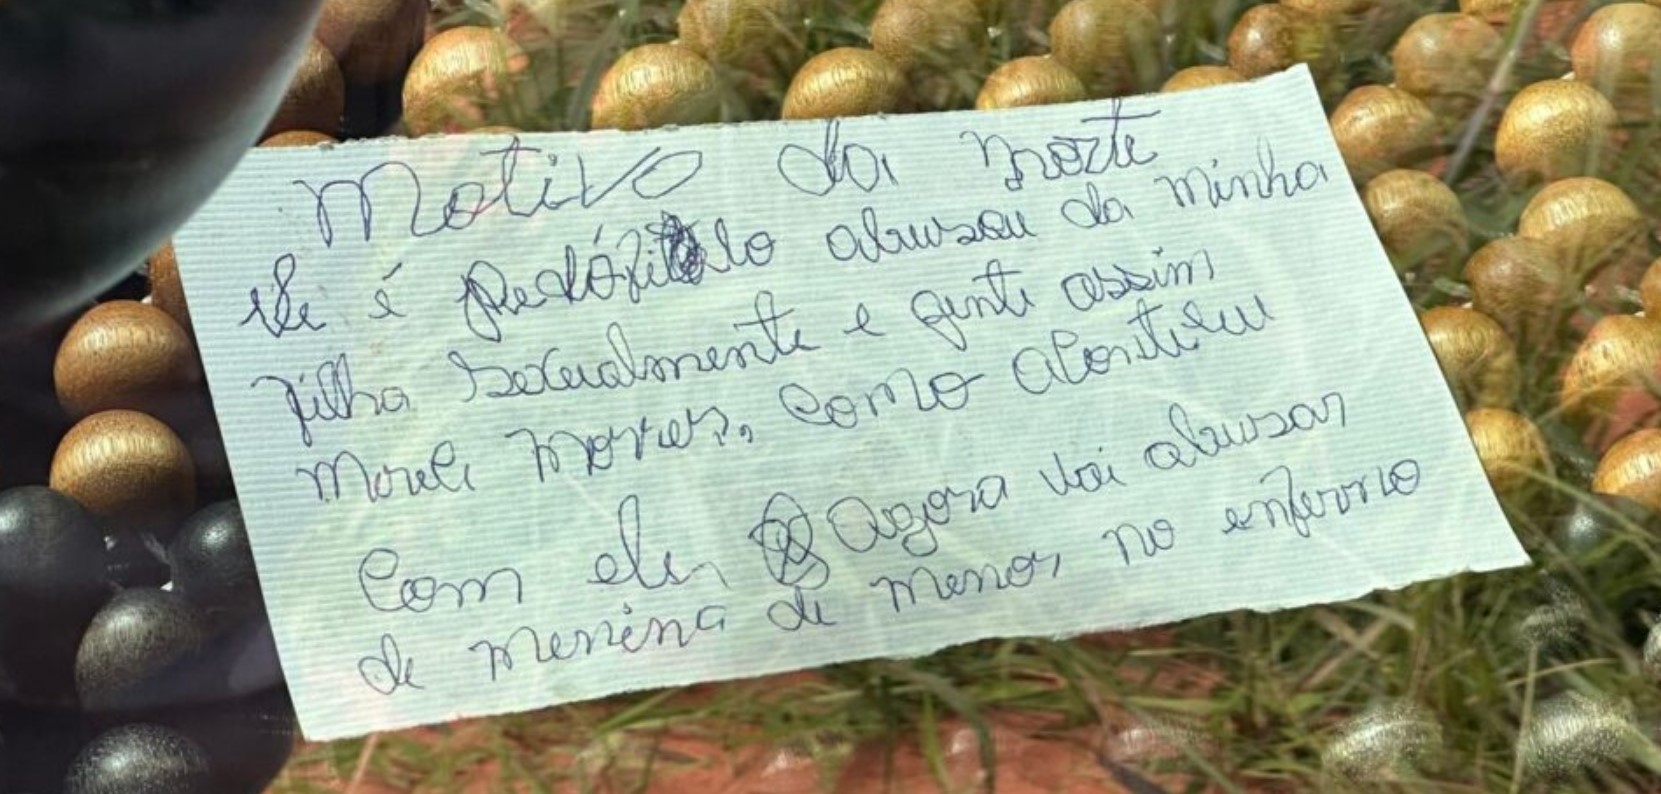 Motivo da morte
Ele é pedófilo abusou da minha
filha sexualmente e gente assim
merece morrer, como aconteceu
Com ele, agora vai abusar
de menina de menor no inferno